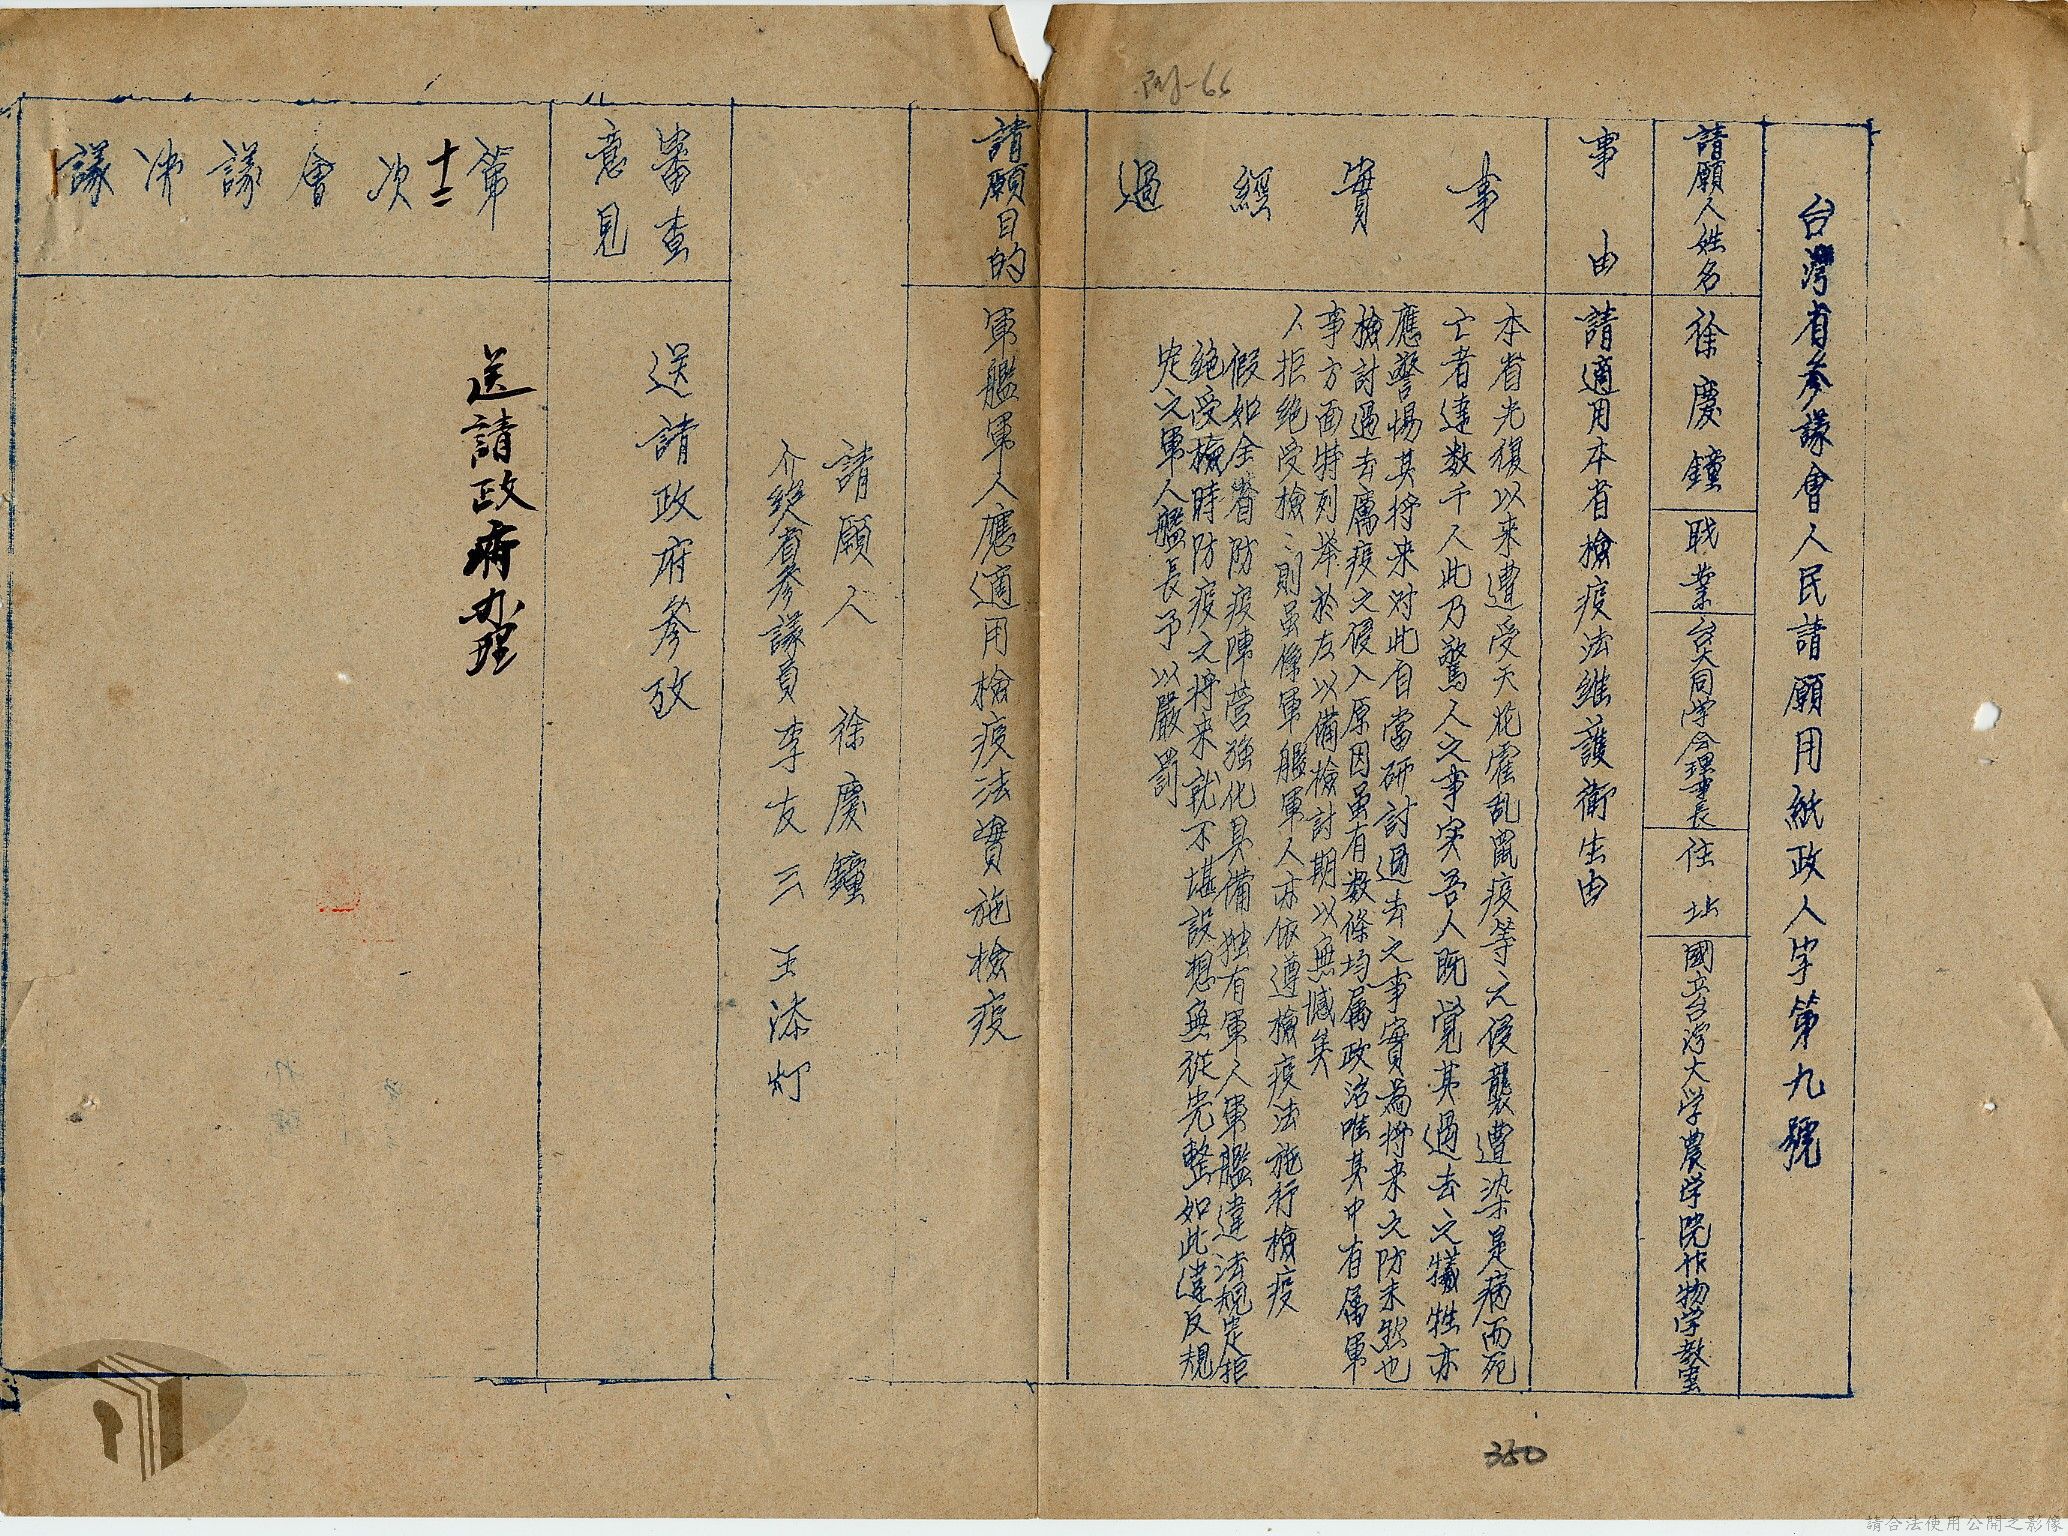 附-66
台灣省參議會人民請願用紙政人字第九號
請願人姓名
徐慶鐘
職業
台大同学会理事長
住址
國立台灣大学農学院作物学教室
事由
請適用本省檢疫法維護衛生由
事實經過
本省光復以來遭受天花霍乱鼠疫等之侵襲遭染是病而死
亡者達数千人此乃驚人之事实吾人既覚其過去之犠牲亦
應警惕其将来対此自當研討過去之事實為将来之防未然也
檢討過去厲疫之侵入原因虽有数條均属政治唯其中有属軍
事方面特列举於左以備檢討期以無憾矣
人拒绝受檢、則虽係軍艦軍人亦依遵檢疫法施行檢疫
假如全省防疫陣营强化具備独有軍人軍艦違法規定拒
绝受檢時防疫之将来就不堪設想無從完整如此違反規
定之軍人艦長予以嚴罰
請願目的
軍艦軍人應適用檢疫法實施檢疫
請願人 徐慶鐘
介紹人省參議員李友三 王添灯
審查意見
送請政府參攷
第十二次會議決議
送請政府办理
350
請合法使用公開之影像